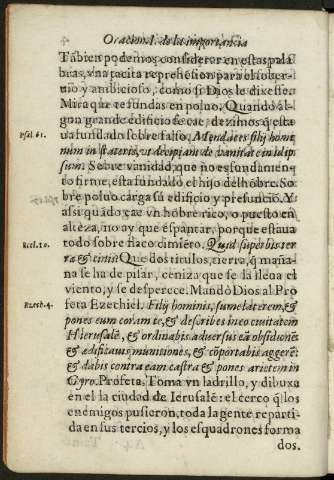 4 Oracion I. de la importancia
Tãbien podemos considerar en estas pala
bras, vna tacita reprehẽsion para el sober-
uio y ambicioso, como si Dios le dixesse.
Mira que te fundas en poluo. Quando al-
gun grande edificio se cae, dezimos q̃ esta
ua fundado sobre falso. Mendaces filij homi
Psal. 61.
num in stateris, vt decipiant de vanitate in idip
sum. Sobre vanidad, que no es fundamen-
to firme, esta fundado el hijo del hõbre. So
bre poluo cárga sú edificio y presunciõ. Y
assi quãdo cae vn hõbre rico, o puesto en
alteza, no ay que espantar, porque estaua
todo sobre flaco cimiẽto. Quid superbis ter
Eccl. 10.
ra & cinis? Que dos titulos, tierra, q̃ maña
na se ha de pisar, ceniza que se la lleua el
viento, y se desperece. Mandò Dios al Pro
feta Ezechiel. Filij hominis, sume laterem, &
Ezech. 4.
pones eum coram te, & describes in eo ciuitatem
Hierusalẽ, & ordinabis aduersus eã obsidionẽ
& ædificaui munitiones, & cõportabis aggerẽ:
& dabis contra eam castra & pones arietem in
Gyro. Profeta, Toma vn ladrillo, y dibuxa
en el la ciudad de Ierusalẽ: el cerco q̃ los
enemigos pusieron, toda la gente reparti-
da en sus tercios, y los esquadrones forma
dos.